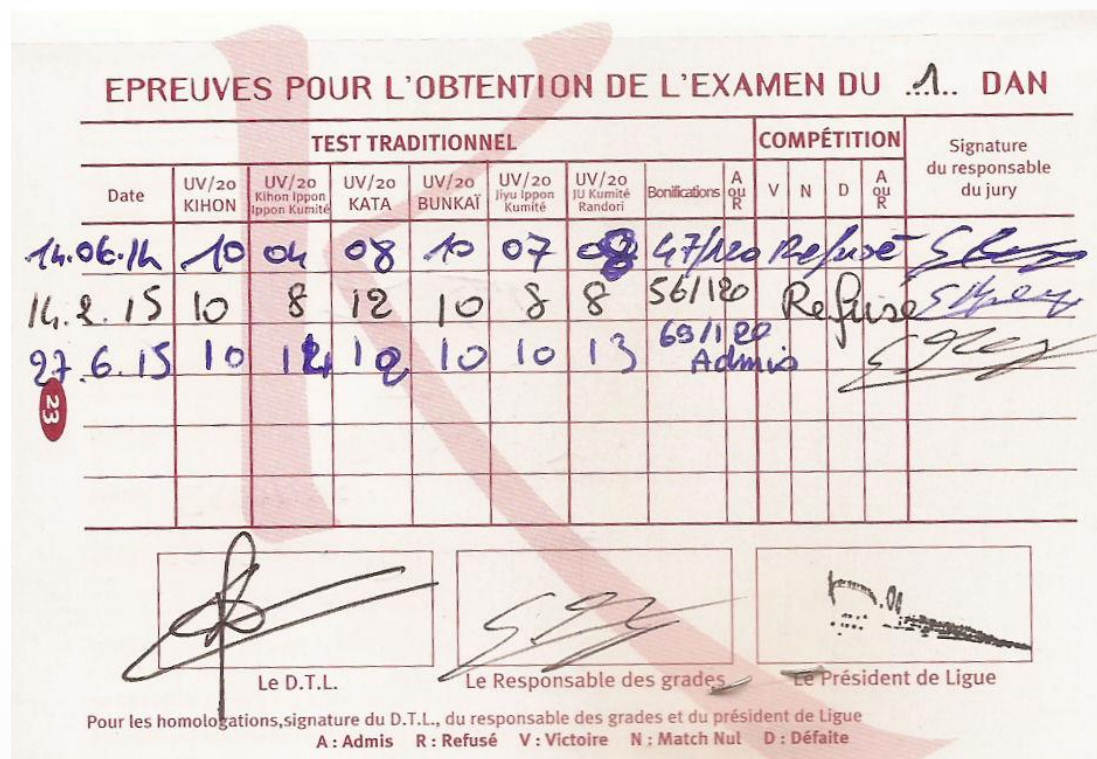 EPREUVES POUR L'OBTENTION DE L'EXAMEN DU .1.. DAN
TEST TRADITIONNEL COMPÉTITION Signature du responsable du jury
Date UV/20 KIHON UV/20 Kihon Ippon Ippon Kumité UV/20 KATA UV/20 BUNKAÏ UV/20 Jiyu Ippon Kumité UV/20 JU Kumité Randori Bonifications A ou R V N D A ou R
14.06.14 10 04 08 10 07 08 47/120 Refusé
14.2.15 10 8 12 10 8 8 56/120 Refusé
27.6.15 10 14 12 10 10 13 69/120 Admis
23
Le D.T.L. Le Responsable des grades Le Président de Ligue
Pour les homologations,signature du D.T.L., du responsable des grades et du président de Ligue
A : Admis R : Refusé V : Victoire N : Match Nul D : Défaite